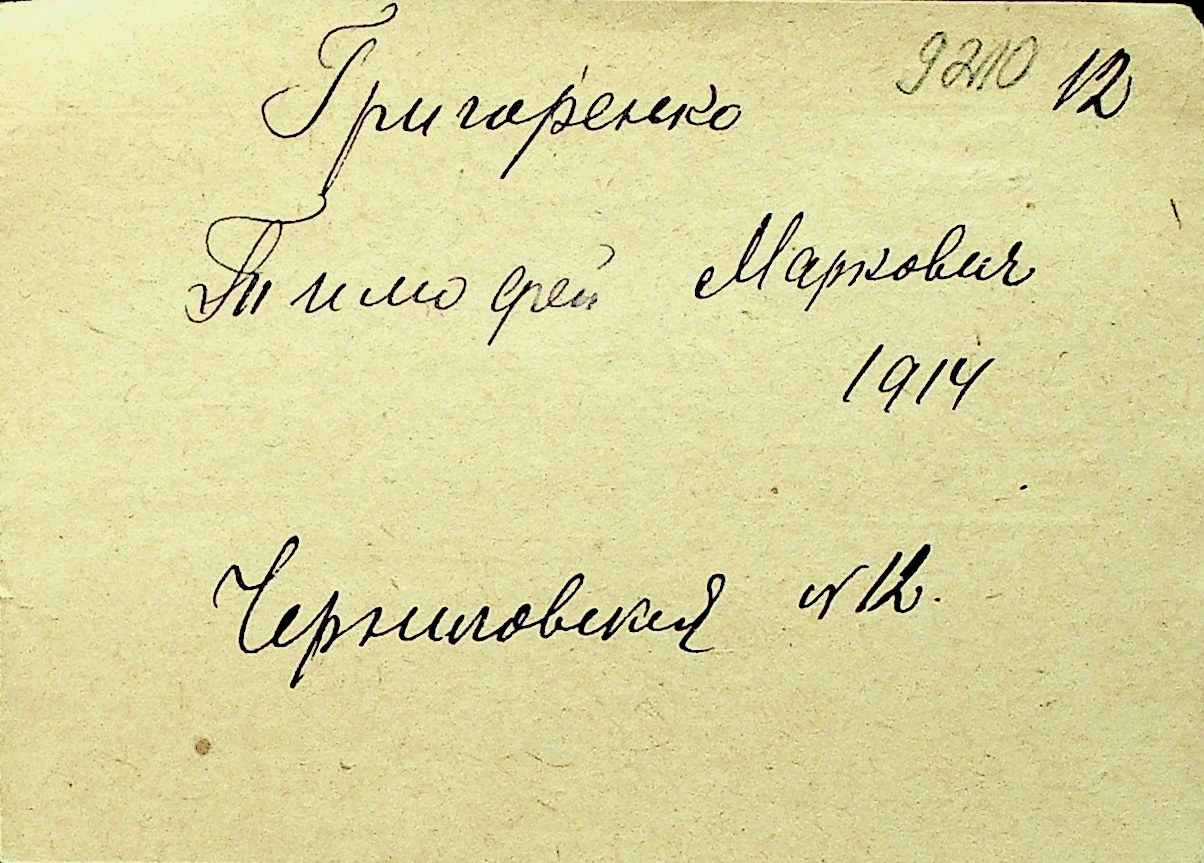 Григоренко 9210 12
Тимофей Маркович
1914
Черниговская №12.